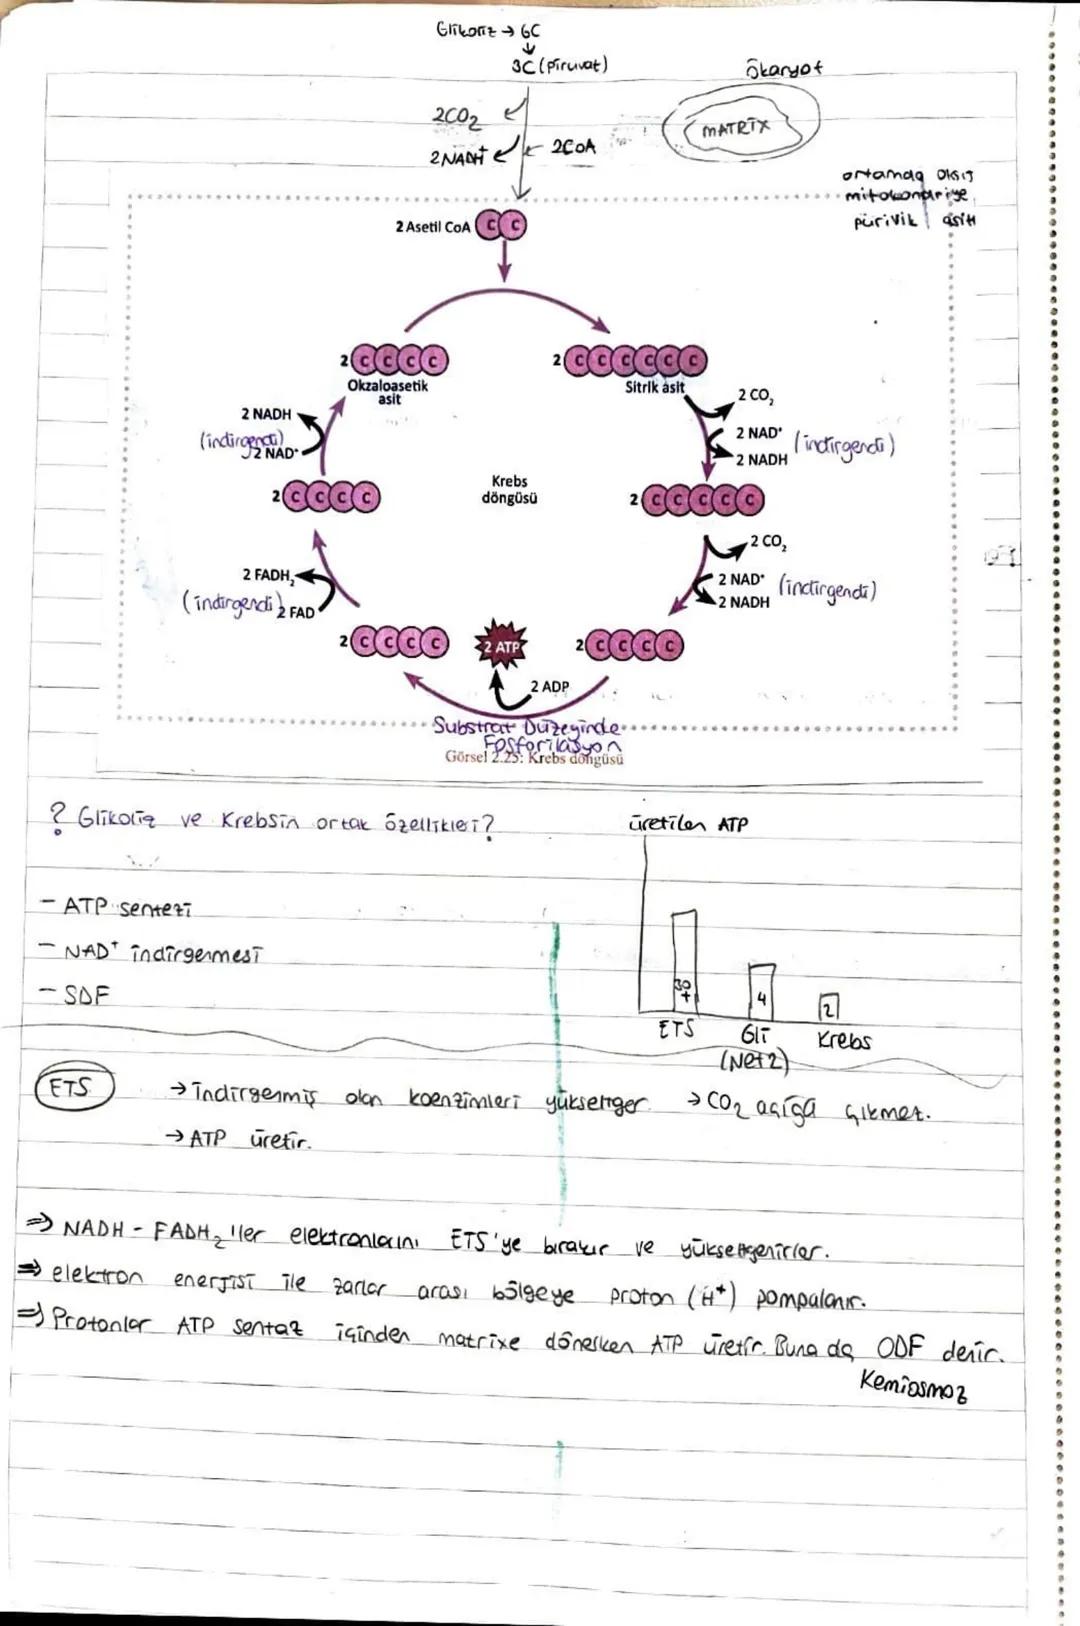 Glikoliz → 6C
↓
3C (Piruvat)
ökaryot
2CO₂
MATRİX
2NADH
2CoA
ortamda oksij
mitokondriye
pürivik asit
2 Asetil CoA C C
2 C C C C
Okzaloasetik
asit
2 C C C C C C
Sitrik asit
2 CO₂
2 NADH
(indirgendi)
2 NAD⁺
2 NAD⁺ (indirgendi)
2 NADH
Krebs
döngüsü
2 C C C C
2 C C C C C
2 CO₂
2 FADH₂
(indirgendi) 2 FAD
2 NAD⁺ (indirgendi)
2 NADH
2 C C C C
2 ATP
2 C C C C
2 ADP
Substrat Düzeyinde
Fosforilasyon
Görsel 2.25: Krebs döngüsü
? Glikoliz ve Krebsin ortak özellikleri?
üretilen ATP
- ATP sentezi
- NAD⁺ indirgenmesi
- SDF
30+
4
2
ETS
Gli
(Net 2)
Krebs
ETS
→ indirgenmiş olan koenzimleri yükseltger. → CO₂ açığa çıkmaz.
→ ATP üretir.
⇒ NADH - FADH₂'ler elektronlarını ETS'ye bırakır ve yükseltgenirler.
⇒ elektron enerjisi ile zarlar arası bölgeye proton (H⁺) pompalanır.
⇒ Protonlar ATP sentaz içinden matrixe dönerken ATP üretir. Buna da ODF denir.
Kemiosmoz